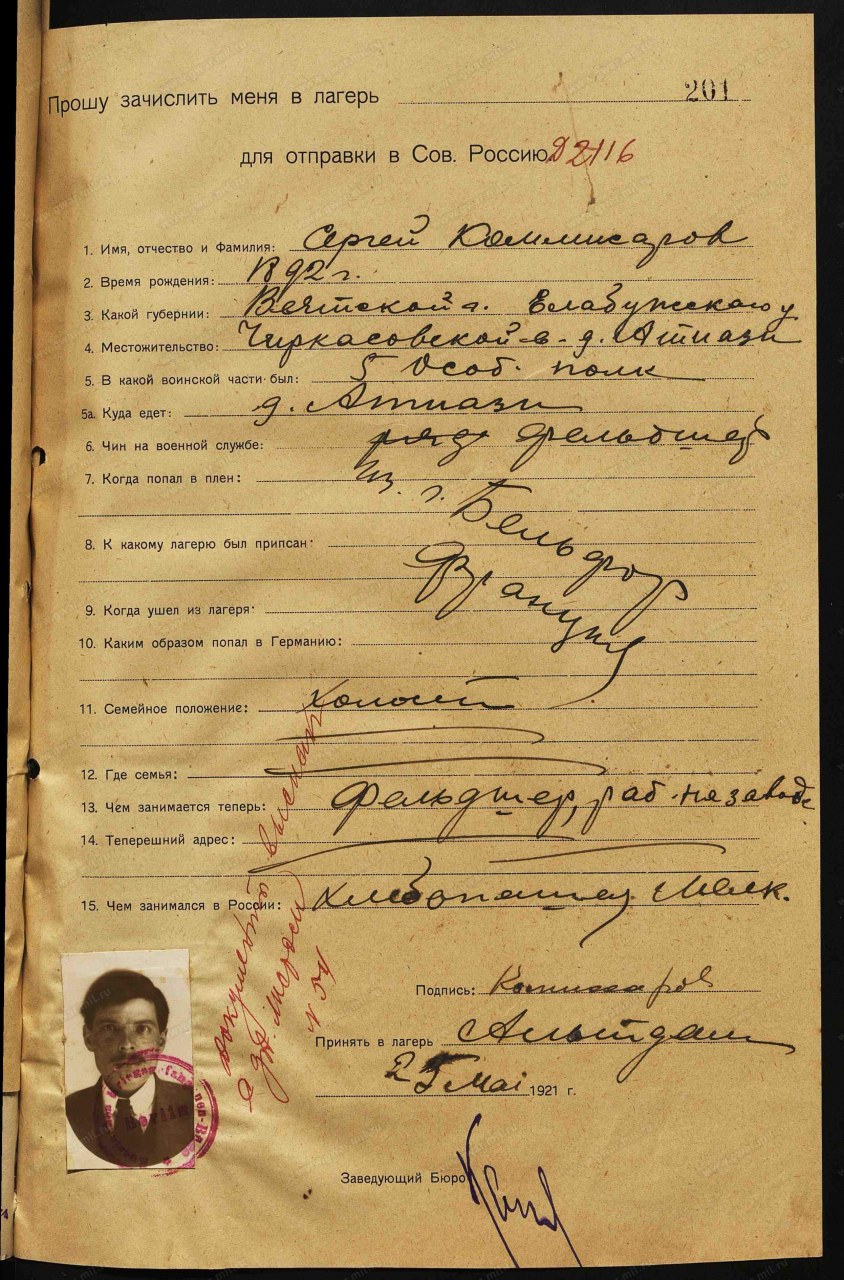 201
Прошу зачислить меня в лагерь
для отправки в Сов. Россию Д 2116
1. Имя, отчество и Фамилия: Сергей Коммисаров
2. Время рождения: 1892 г.
3. Какой губернии: Вятской г. Елабужскаго у
4. Местожительство: Чиркасовской в. д. Атиази
5. В какой воинской части был: 5 Особ. полк
5а. Куда едет: д. Атиази
6. Чин на военной службе: ряд фельдшер
7. Когда попал в плен: Из. г. Бельфор
8. К какому лагерю был припсан: Франции
9. Когда ушел из лагеря:
10. Каким образом попал в Германию:
11. Семейное положение: холост
12. Где семья:
13. Чем занимается теперь: Фельдшер, раб. на заводе
14. Теперешний адрес:
15. Чем занимался в России: Хлебопашец. Мелк.
документы
N 54
Подпись: Комисаров
Принять в лагерь Альтдам
25 Mai 1921 г.
Заведующий Бюро
Berlin